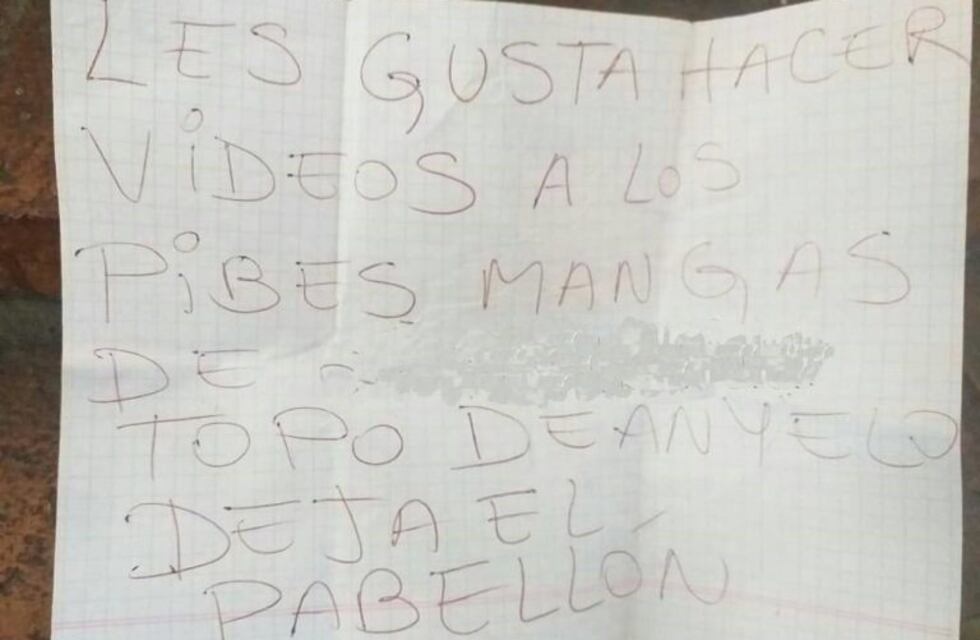 LES GUSTA HACER
VIDEOS A LOS
PIBES MANGAS
DE
TOPO DEANYELO
DEJA EL
PABELLON